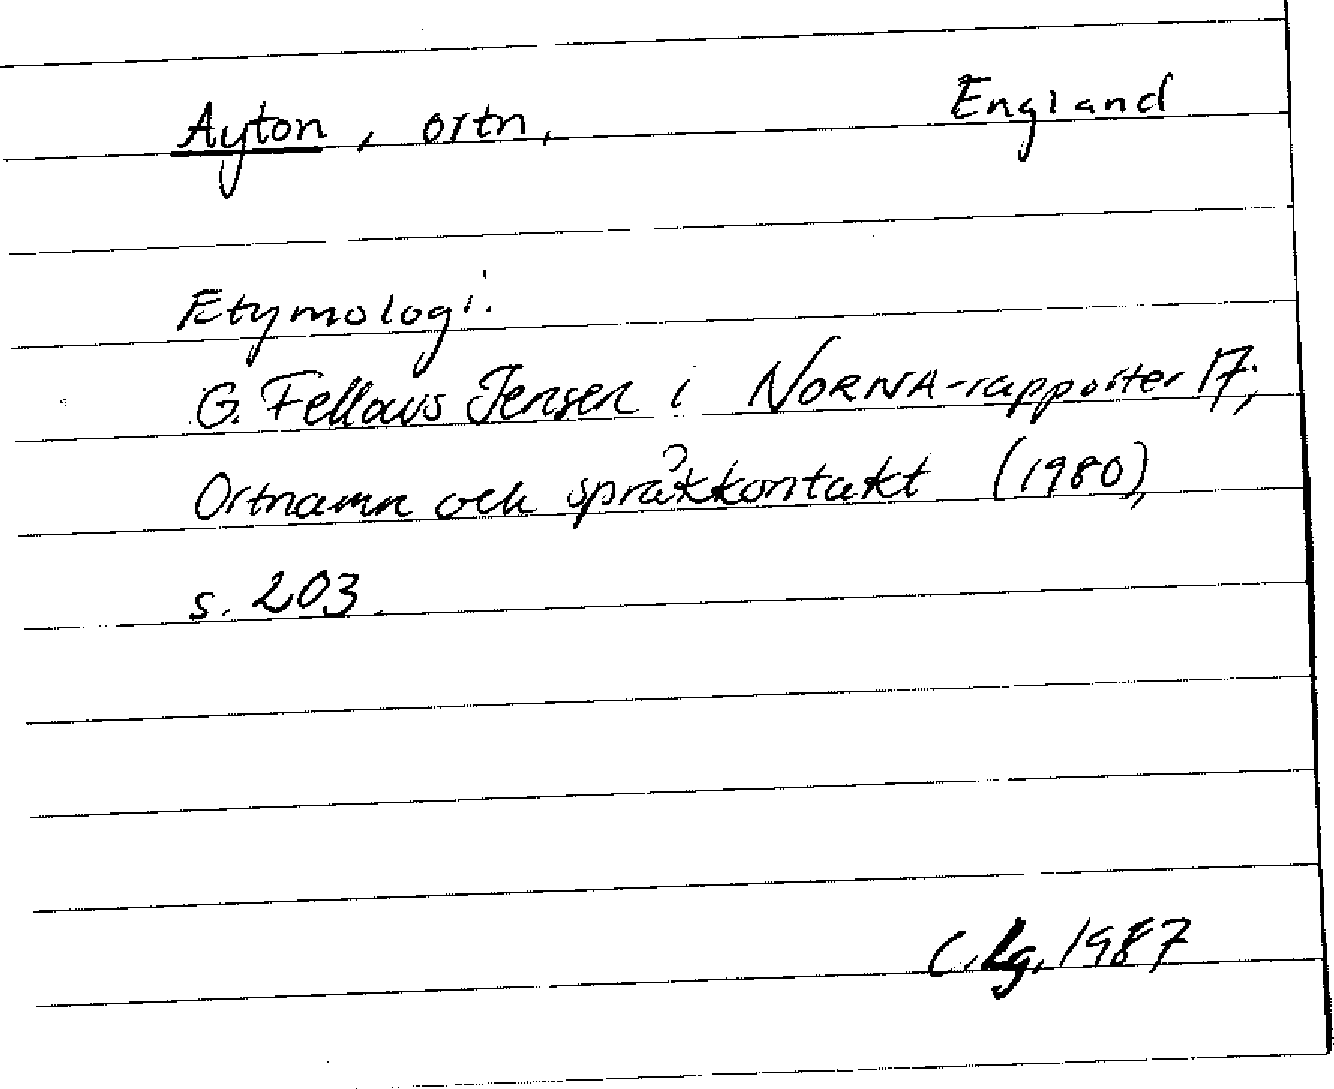 Ayton, ortn, England
Etymologi:
G. Fellows Jensen i NORNA-rapporter 17;
Ortnamn och språkkontakt (1980),
s. 203.
C. Lg. 1987